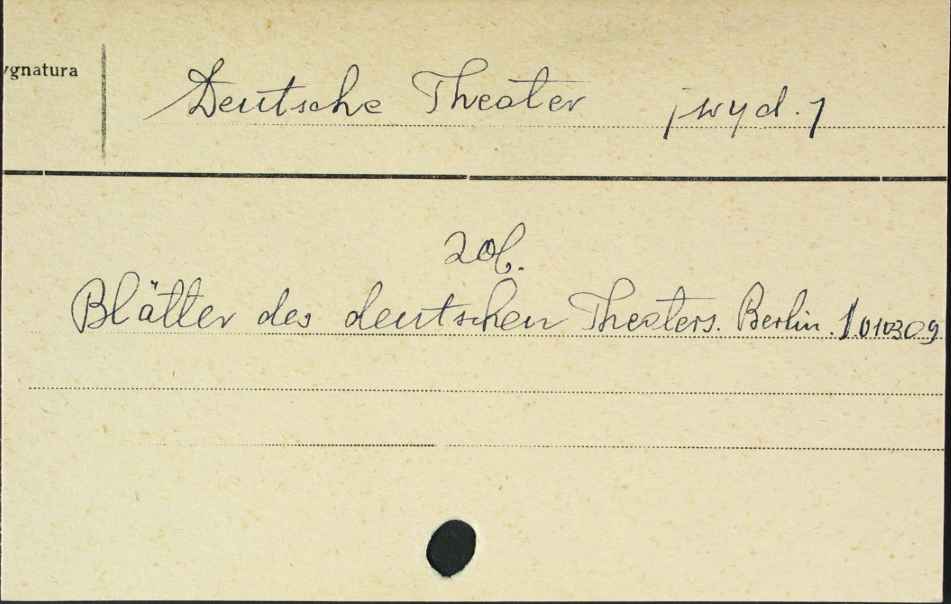 ygnatura
Deutsche Theater /wyd./
zob.
Blätter des deutschen Theaters. Berlin. 1010309